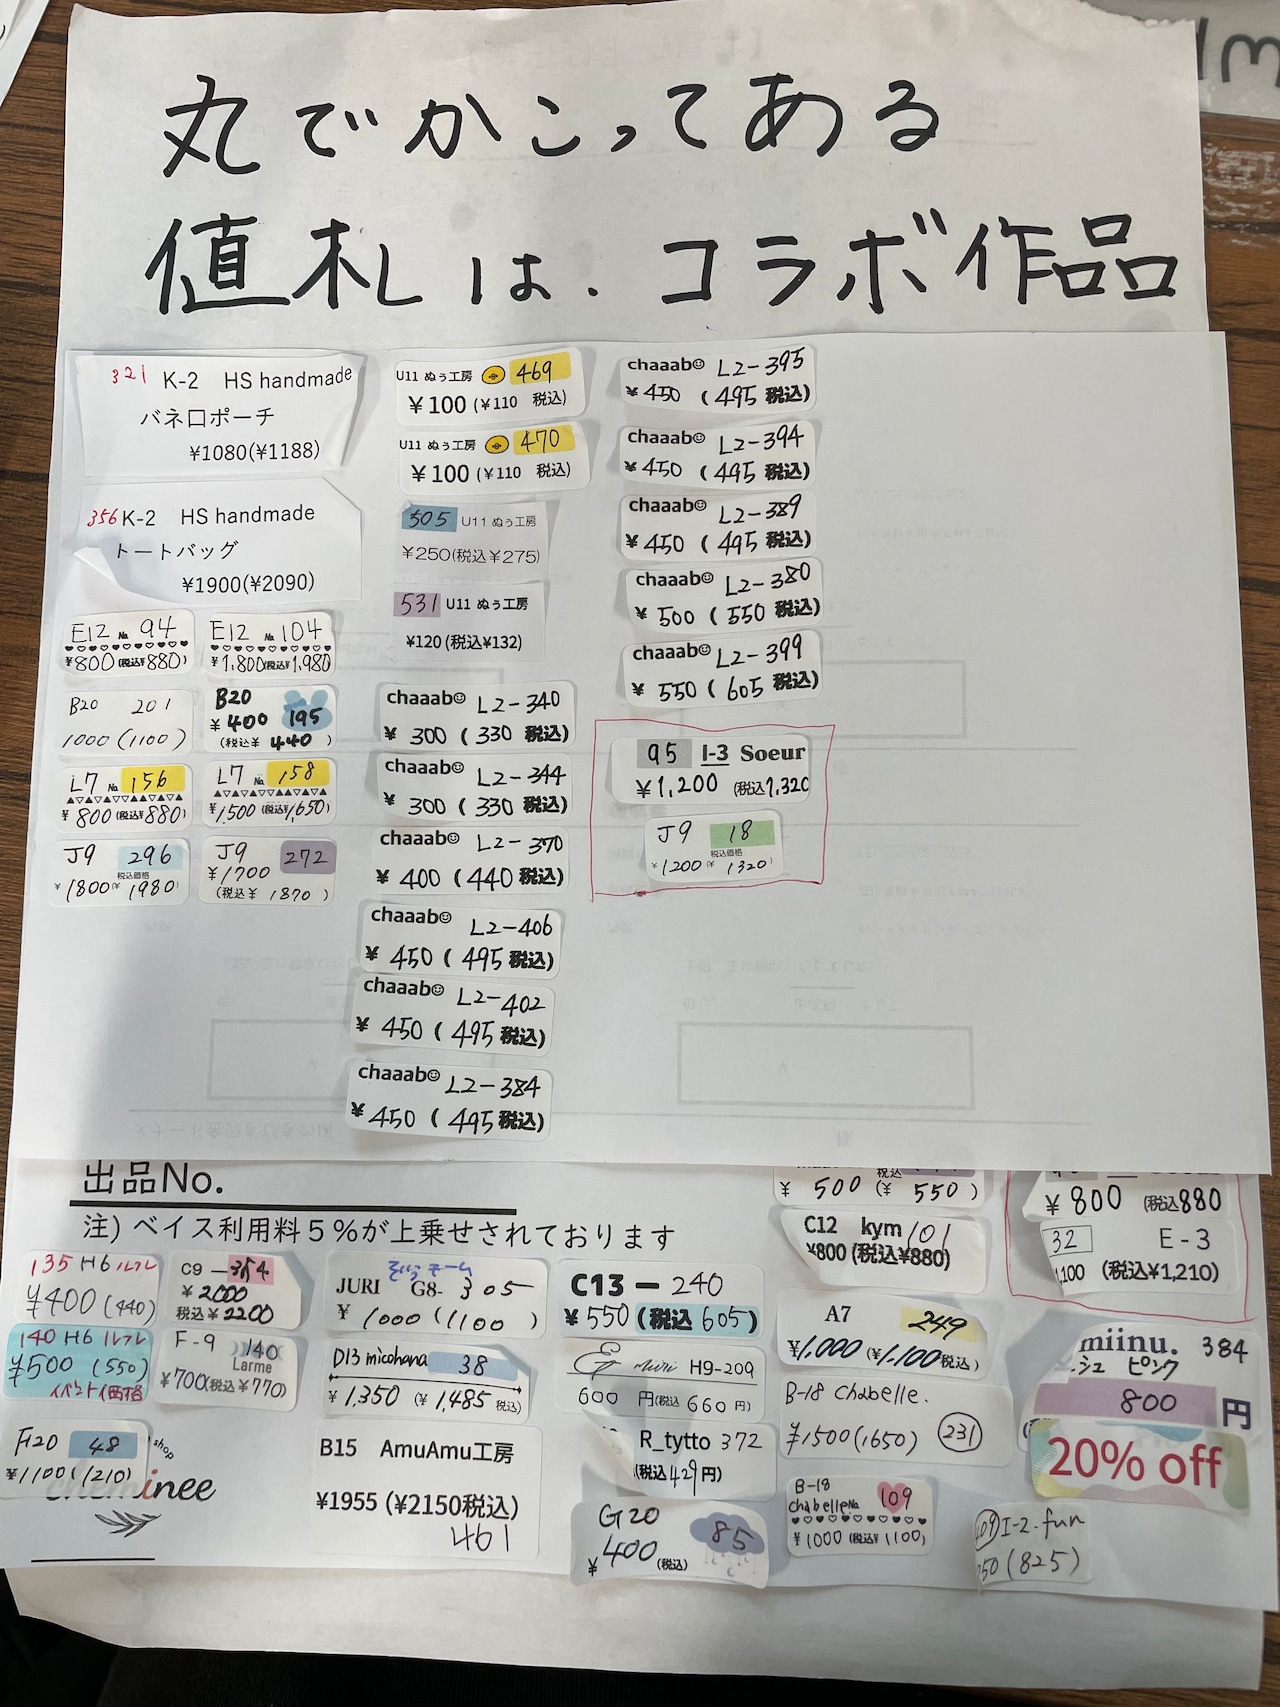 丸でかこってある
値札は、コラボ作品
321 K-2 HS handmade
バネ口ポーチ
¥1080(¥1188)
356 K-2 HS handmade
トートバッグ
¥1900(¥2090)
E12 No. 94
¥800(税込¥880)
E12 No. 104
¥1,800(税込¥1,980)
B20 201
1000(1100)
B20
¥400 195
(税込¥ 440)
L7 No. 156
¥800(税込¥880)
L7 No. 158
¥1500(税込¥1,650)
J9 296
税込価格
¥1800(¥1980)
J9 272
¥1700
(税込¥ 1870)
U11 ぬぅ工房 469
¥100(¥110 税込)
U11 ぬぅ工房 470
¥100(¥110 税込)
505 U11 ぬぅ工房
¥250(税込¥275)
531 U11 ぬぅ工房
¥120(税込¥132)
chaaab L2-340
¥300(330税込)
chaaab L2-344
¥300(330税込)
chaaab L2-370
¥400(440税込)
chaaab L2-406
¥450(495税込)
chaaab L2-402
¥450(495税込)
chaaab L2-384
¥450(495税込)
chaaab L2-395
¥450(495税込)
chaaab L2-394
¥450(495税込)
chaaab L2-389
¥450(495税込)
chaaab L2-380
¥500(550税込)
chaaab L2-399
¥550(605税込)
95 I-3 Soeur
¥1,200(税込1,320
J9 18
税込価格
¥1200(¥1320)
出品No.
注)ベイス利用料5%が上乗せされております
135 H6 ルフレ
¥400(440)
140 H6 ルフレ
¥500(550)
イベント価格
F20 48
¥1100(1210)
shop
cheminee
C9-354
¥2000
税込¥2200
F-9 140
Larme
¥700(税込¥770)
JURI G8-305
¥1000(1100)
D13 micohana 38
¥1,350(¥1,485税込)
B15 AmuAmu工房
¥1955(¥2150税込)
461
C13-240
¥550(税込605)
H9-209
600円(税込660円)
R_tytto 372
(税込429円)
G20 85
¥400(税込)
税込
¥500(¥550)
C12 kym 101
¥800(税込¥880)
A7 249
¥1,000(¥1,100税込)
B-18 chabelle.
¥1500(1650) 231
B-18
chabelle No. 109
¥1000(税込¥1100)
¥800(税込880
32 E-3
1,100(税込¥1,210)
miinu. 384
シュ ピンク
800円
20% off
I-2.fun
50(825)